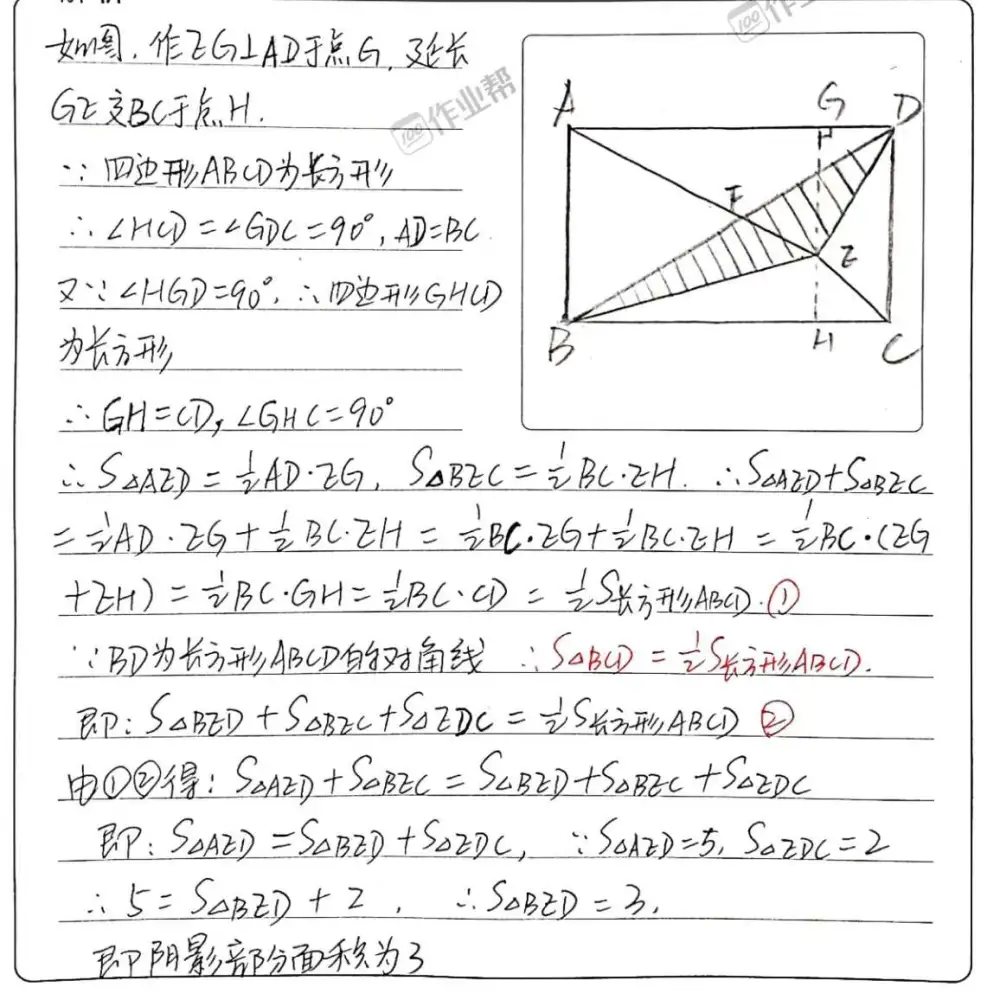 如图,作EG⊥AD于点G,延长
GE交BC于点H.
∵四边形ABCD为长方形
∴∠HCD=∠GDC=90°,AD=BC
又∵∠HGD=90°,∴四边形GHCD
为长方形
∴GH=CD,∠GHC=90°
∴S△AED=½AD·EG,S△BEC=½BC·EH.∴S△AED+S△BEC
=½AD·EG+½BC·EH=½BC·EG+½BC·EH=½BC·(EG
+EH)=½BC·GH=½BC·CD=½S长方形ABCD.①
∵BD为长方形ABCD的对角线 ∴S△BCD=½S长方形ABCD.
即:S△BED+S△BEC+S△EDC=½S长方形ABCD ②
由①②得:S△AED+S△BEC=S△BED+S△BEC+S△EDC
即:S△AED=S△BED+S△EDC,∵S△AED=5,S△EDC=2
∴5=S△BED+2,∴S△BED=3,
即阴影部分面积为3
A
G
D
F
E
B
H
C
作业帮
作业帮